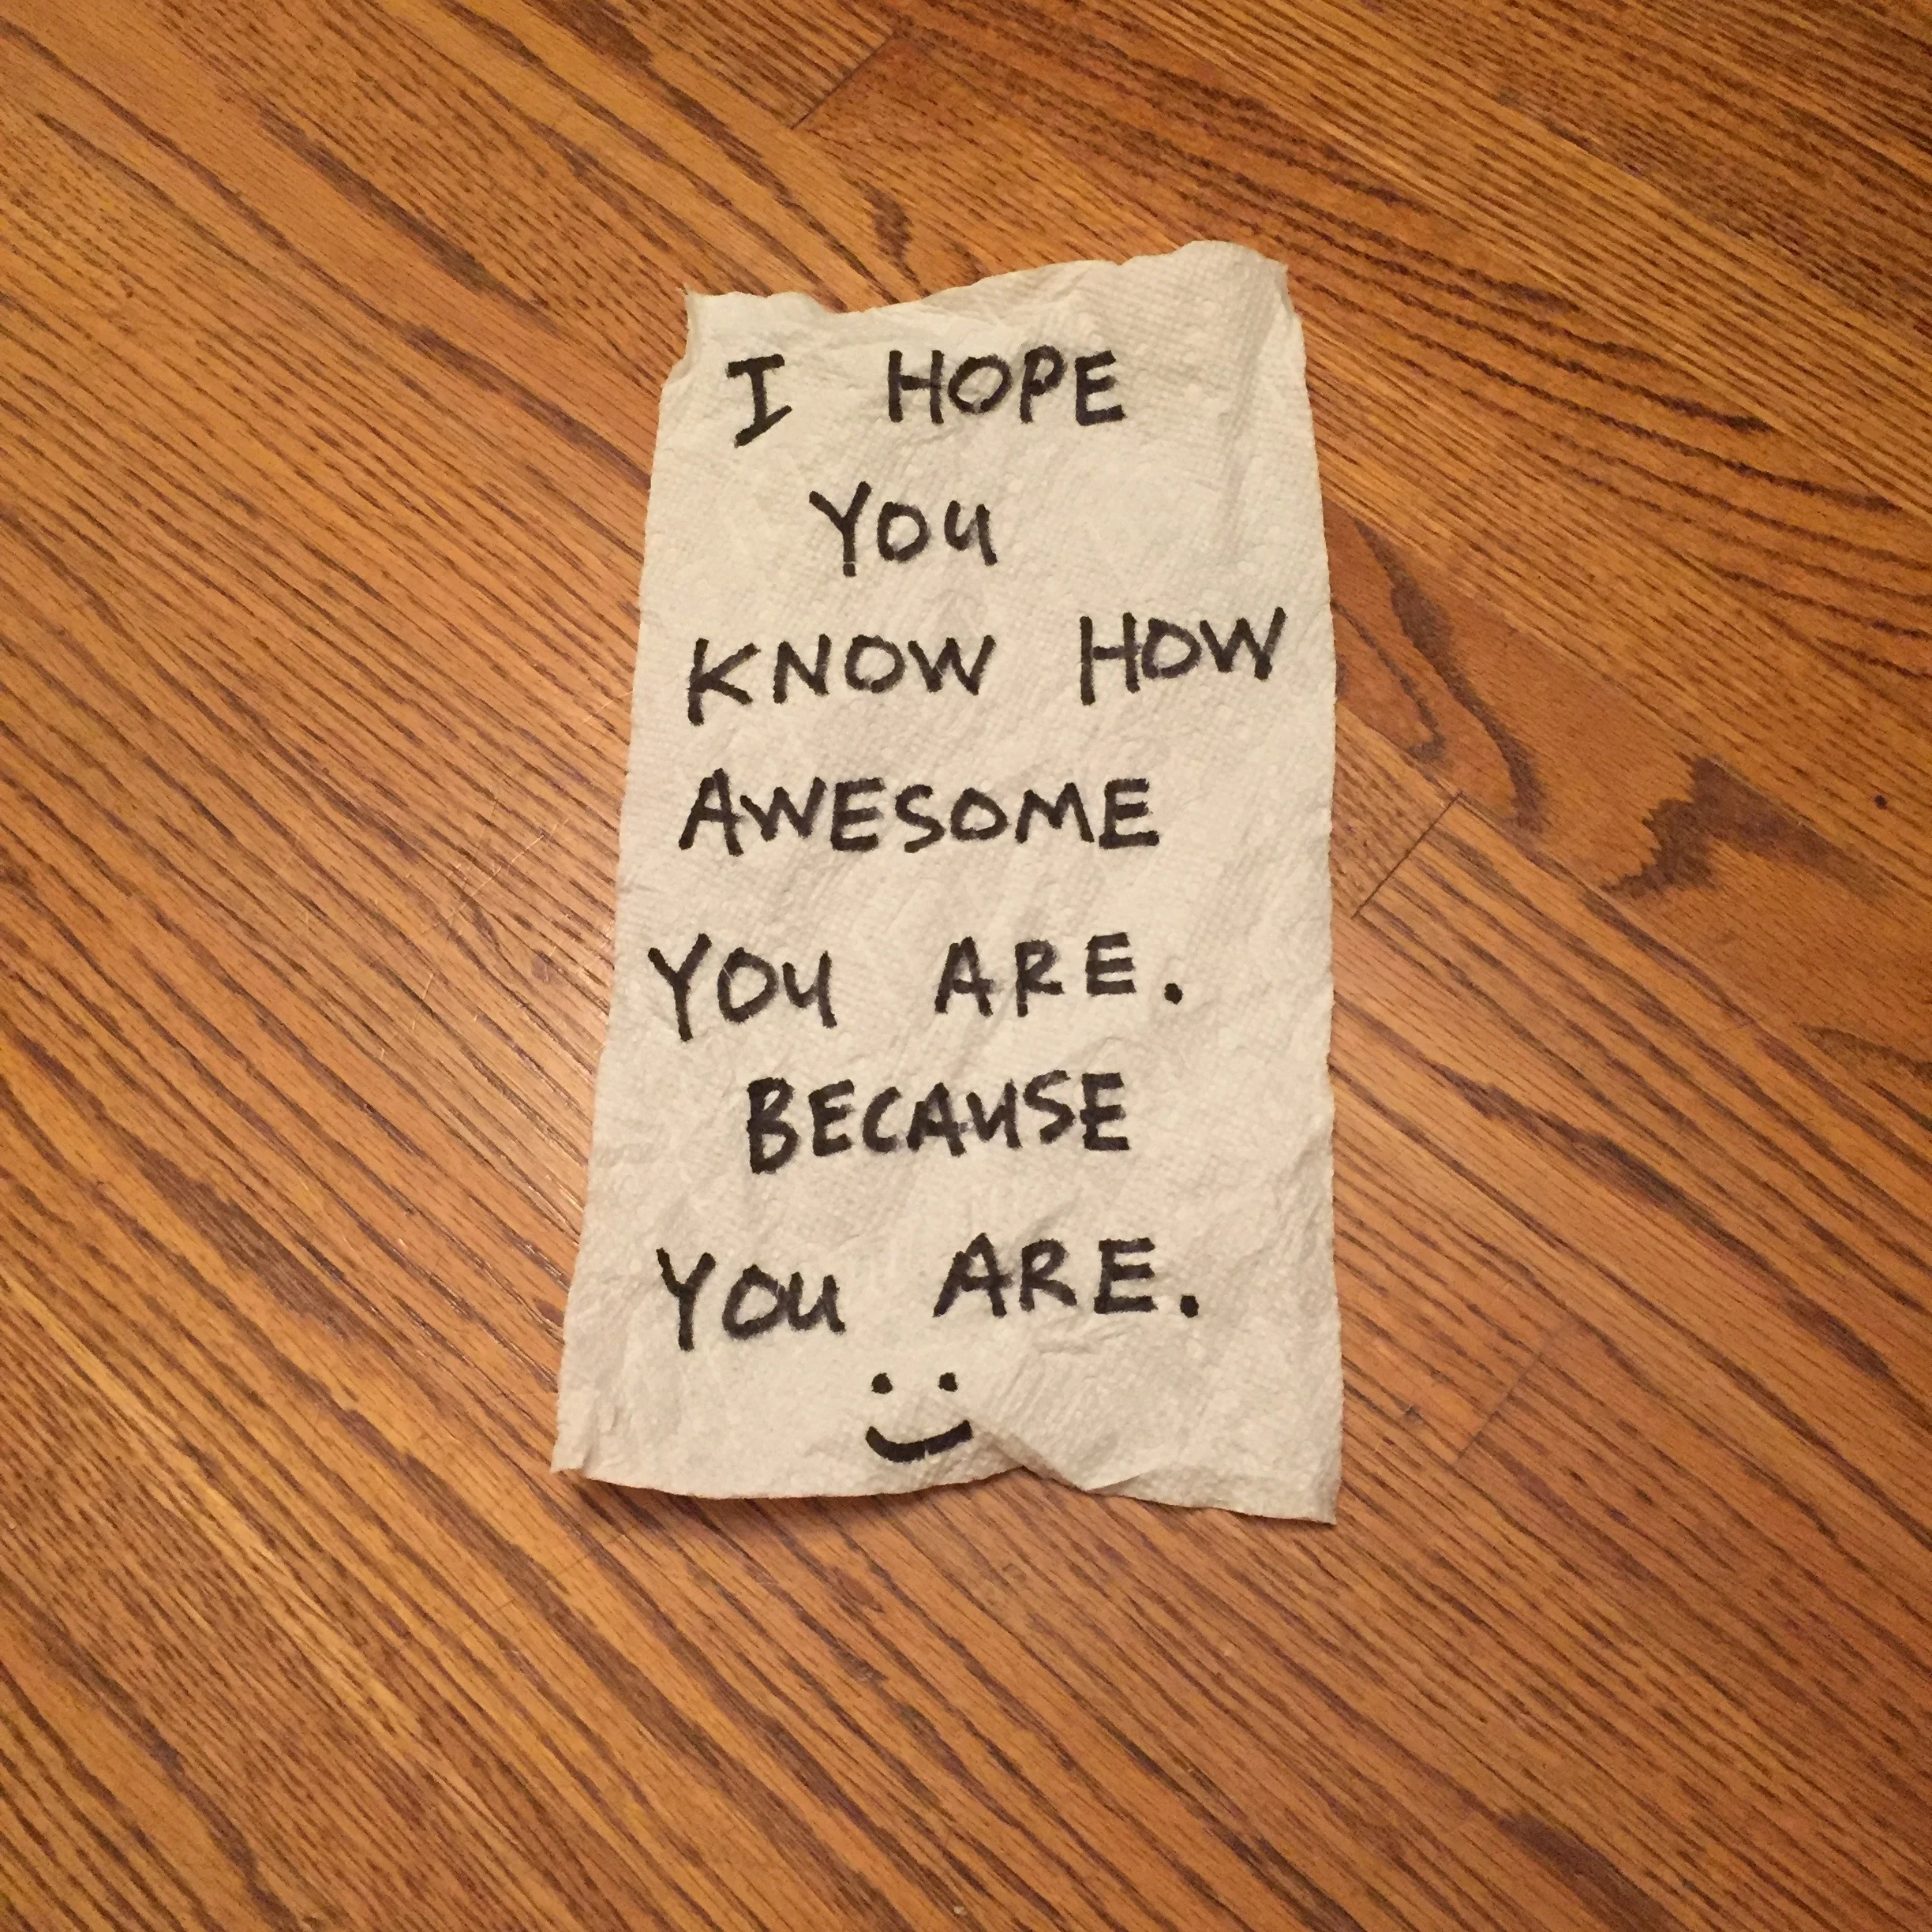 I HOPE
YOU
KNOW HOW
AWESOME
YOU ARE.
BECAUSE
YOU ARE.